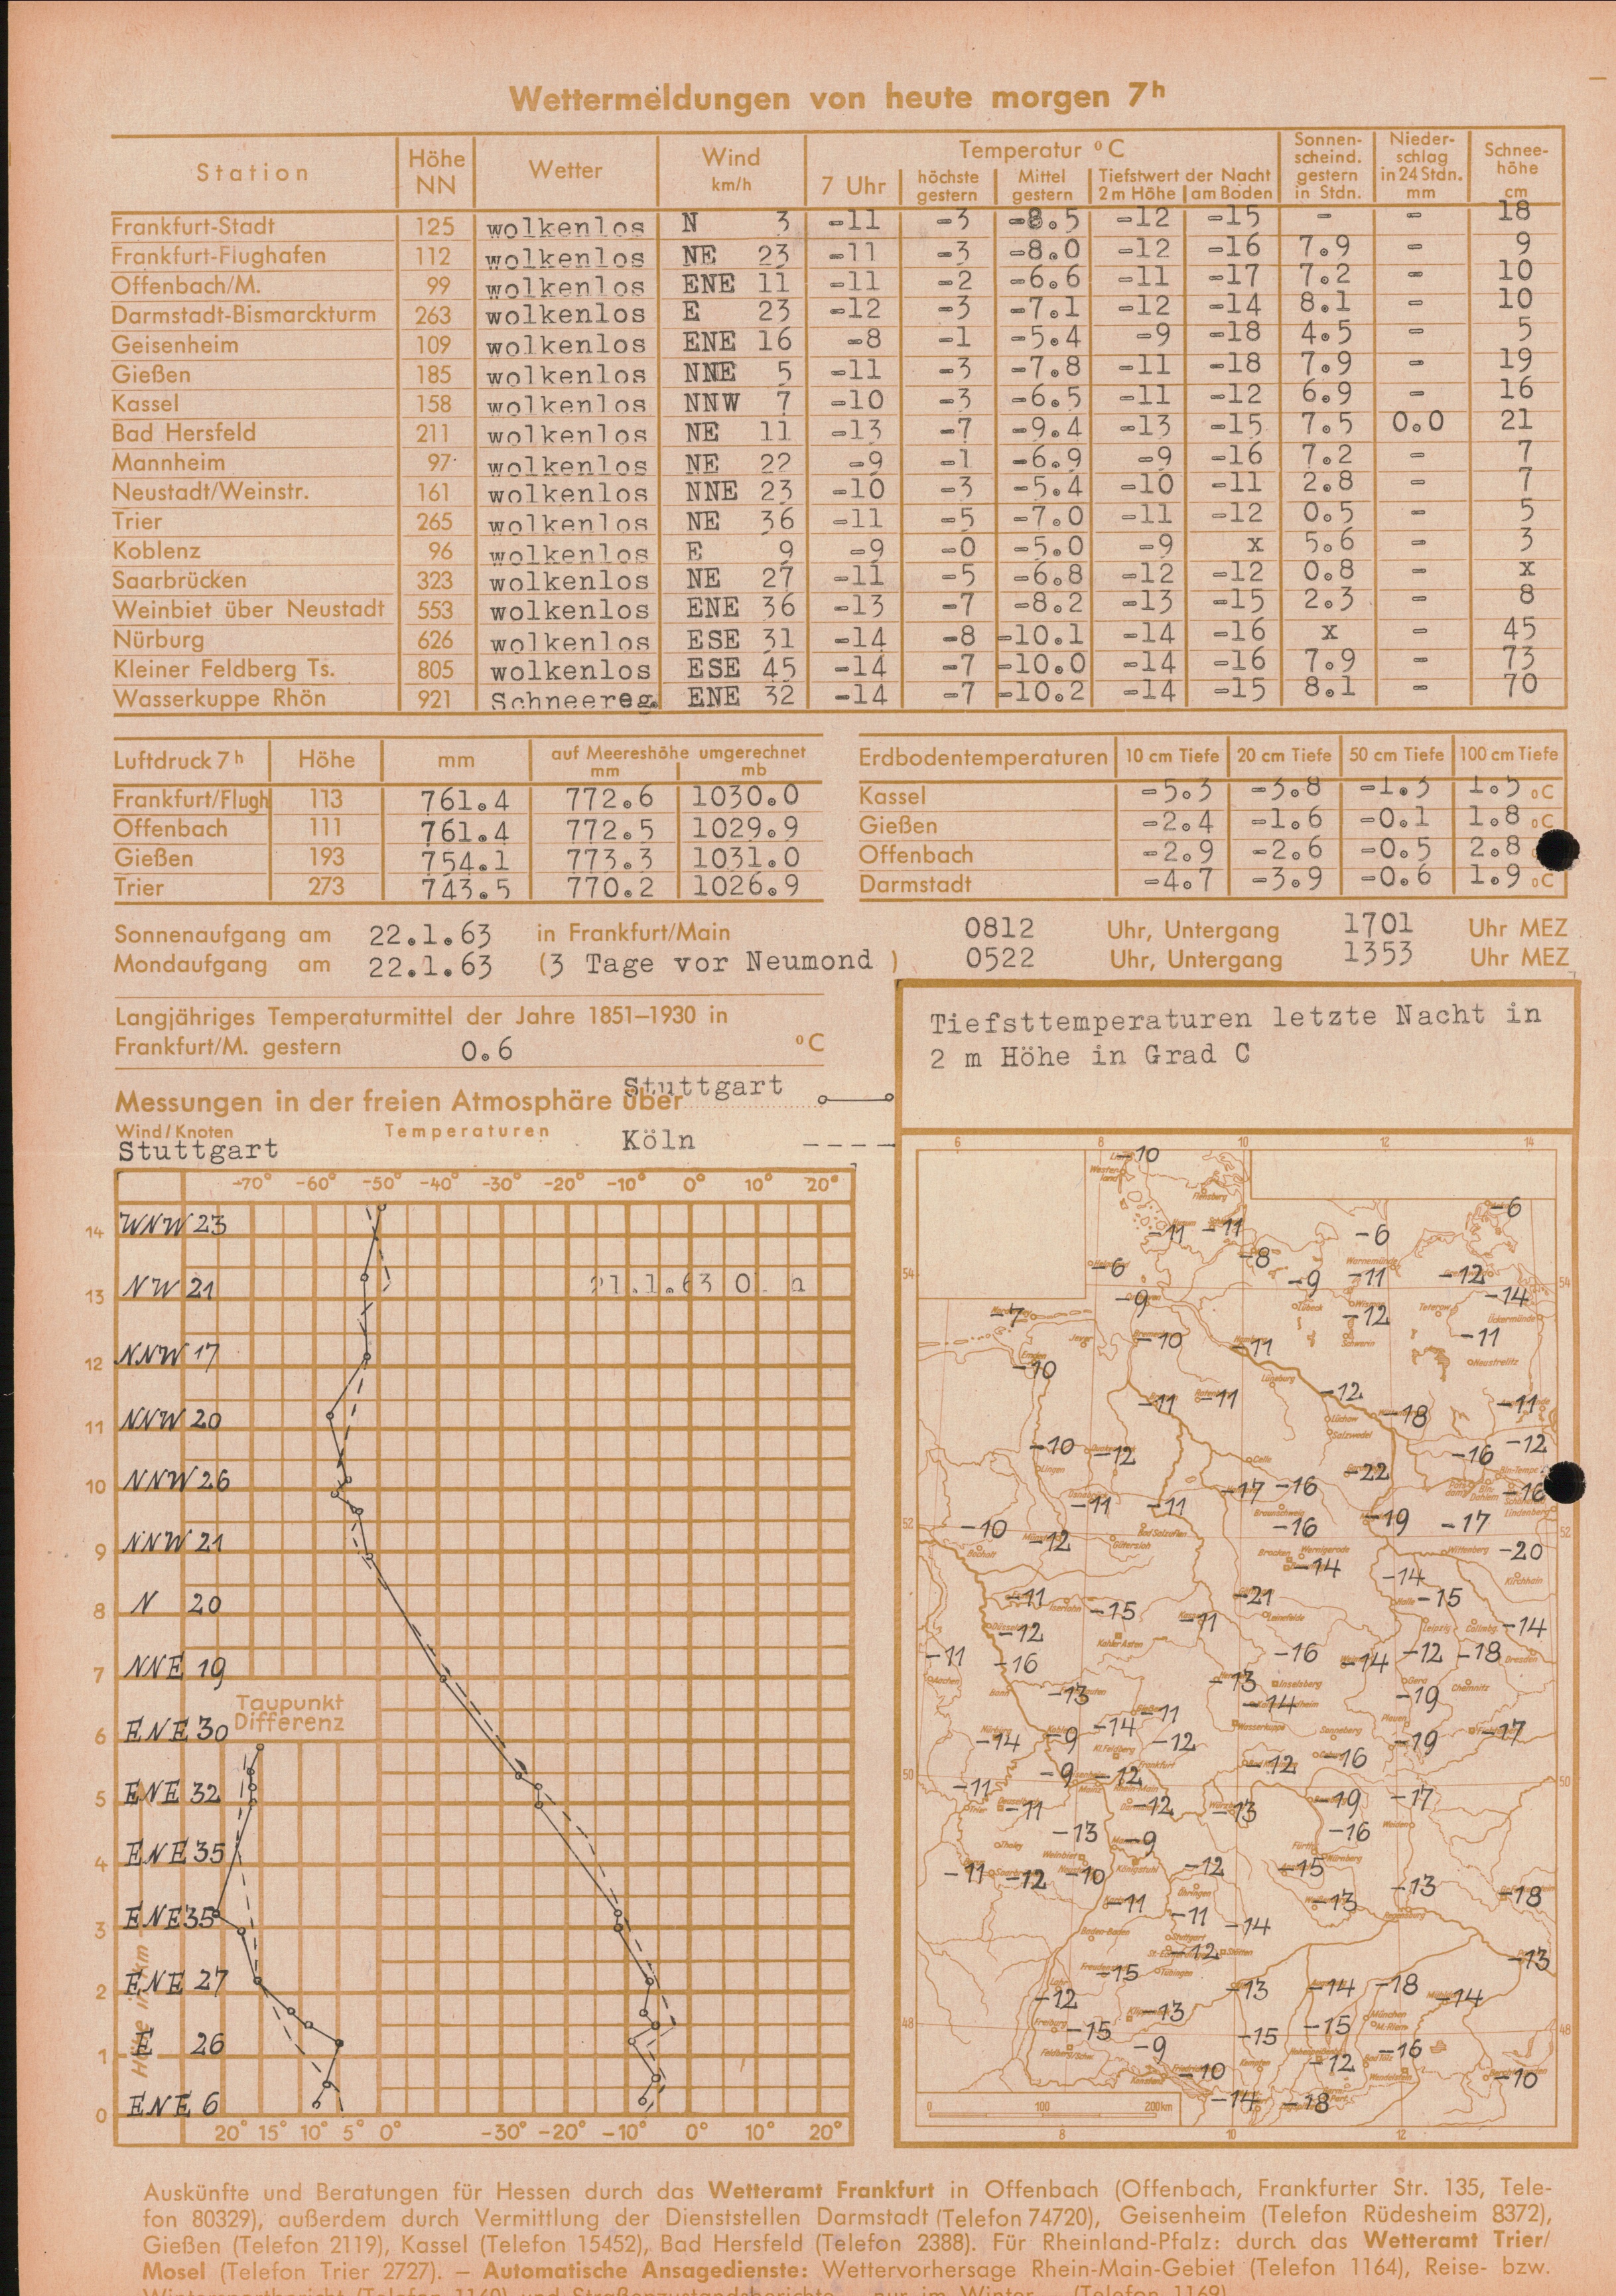 Wettermeldungen von heute morgen 7h
Station Höhe NN Wetter Wind km/h Temperatur °C Sonnen-scheind. gestern in Stdn. Nieder-schlag in 24 Stdn. mm Schnee-höhe cm
7 Uhr höchste gestern Mittel gestern Tiefstwert der Nacht 2 m Höhe am Boden
Frankfurt-Stadt 125 wolkenlos N 3 -11 -3 -8.5 -12 -15 - - 18
Frankfurt-Flughafen 112 wolkenlos NE 23 -11 -3 -8.0 -12 -16 7.9 - 9
Offenbach/M. 99 wolkenlos ENE 11 -11 -2 -6.6 -11 -17 7.2 - 10
Darmstadt-Bismarckturm 263 wolkenlos E 23 -12 -3 -7.1 -12 -14 8.1 - 10
Geisenheim 109 wolkenlos ENE 16 -8 -1 -5.4 -9 -18 4.5 - 5
Gießen 185 wolkenlos NNE 5 -11 -3 -7.8 -11 -18 7.9 - 19
Kassel 158 wolkenlos NNW 7 -10 -3 -6.5 -11 -12 6.9 - 16
Bad Hersfeld 211 wolkenlos NE 11 -13 -7 -9.4 -13 -15 7.5 0.0 21
Mannheim 97 wolkenlos NE 22 -9 -1 -6.9 -9 -16 7.2 - 7
Neustadt/Weinstr. 161 wolkenlos NNE 23 -10 -3 -5.4 -10 -11 2.8 - 7
Trier 265 wolkenlos NE 36 -11 -5 -7.0 -11 -12 0.5 - 5
Koblenz 96 wolkenlos E 9 -9 -0 -5.0 -9 x 5.6 - 3
Saarbrücken 323 wolkenlos NE 27 -11 -5 -6.8 -12 -12 0.8 - x
Weinbiet über Neustadt 553 wolkenlos ENE 36 -13 -7 -8.2 -13 -15 2.3 - 8
Nürburg 626 wolkenlos ESE 31 -14 -8 -10.1 -14 -16 x - 45
Kleiner Feldberg Ts. 805 wolkenlos ESE 45 -14 -7 -10.0 -14 -16 7.9 - 73
Wasserkuppe Rhön 921 Schneereg. ENE 32 -14 -7 -10.2 -14 -15 8.1 - 70
Luftdruck 7h Höhe mm auf Meereshöhe umgerechnet mm mb
Frankfurt/Flugh 113 761.4 772.6 1030.0
Offenbach 111 761.4 772.5 1029.9
Gießen 193 754.1 773.3 1031.0
Trier 273 743.5 770.2 1026.9
Erdbodentemperaturen 10 cm Tiefe 20 cm Tiefe 50 cm Tiefe 100 cm Tiefe
Kassel -5.3 -3.8 -1.3 1.5 °C
Gießen -2.4 -1.6 -0.1 1.8 °C
Offenbach -2.9 -2.6 -0.5 2.8
Darmstadt -4.7 -3.9 -0.6 1.9 °C
Sonnenaufgang am 22.1.63 in Frankfurt/Main 0812 Uhr, Untergang 1701 Uhr MEZ
Mondaufgang am 22.1.63 (3 Tage vor Neumond ) 0522 Uhr, Untergang 1353 Uhr MEZ
Langjähriges Temperaturmittel der Jahre 1851–1930 in
Frankfurt/M. gestern 0.6 °C
Messungen in der freien Atmosphäre über Stuttgart
Wind/Knoten Temperaturen Köln
Stuttgart
-70° -60° -50° -40° -30° -20° -10° 0° 10° 20°
14 WNW 23
13 NW 21 21.1.63 0
12 NNW 17
11 NNW 20
10 NNW 26
9 NNW 21
8 N 20
7 NNE 19
Taupunkt
Differenz
6 ENE 30
5 ENE 32
4 ENE 35
3 ENE 35
2 ENE 27
1 E 26
0 ENE 6
Höhe in km
20° 15° 10° 5° 0° -30° -20° -10° 0° 10° 20°
Tiefsttemperaturen letzte Nacht in
2 m Höhe in Grad C
6 8 10 12 14
-10
-6
-11 -11 -6
-6 -8 -9 -11 -12
-9 -12 -14
-7 -10 -11 -11
-10
-11 -11 -12 -18 -11
-10 -12 -16 -12
-22
-11 -11 -17 -16 -16
-10 -12 -16 -19 -17
-14 -20
-11 -15 -21 -14 -15
-12 -11 -14
-11 -16 -16 -14 -12 -18
-13 -13 -14 -19
-14 -9 -14 -11 -12 -17
-9 -12 -12 -16 -19
-11 -11 -12 -13 -19 -17
-13 -9 -16
-11 -12 -10 -12 -15
-11 -13 -13 -18
-11 -14
-12 -13
-15 -13 -14 -18 -14
-12 -13
-15 -15 -15
-9 -10 -12 -16 -10
-14 -18
0 100 200km
8 10 12
Auskünfte und Beratungen für Hessen durch das Wetteramt Frankfurt in Offenbach (Offenbach, Frankfurter Str. 135, Tele-
fon 80329), außerdem durch Vermittlung der Dienststellen Darmstadt (Telefon 74720), Geisenheim (Telefon Rüdesheim 8372),
Gießen (Telefon 2119), Kassel (Telefon 15452), Bad Hersfeld (Telefon 2388). Für Rheinland-Pfalz: durch das Wetteramt Trier/
Mosel (Telefon Trier 2727). — Automatische Ansagedienste: Wettervorhersage Rhein-Main-Gebiet (Telefon 1164), Reise- bzw.
Wintersportbericht (Telefon 1160) und Straßenzustandsberichte — nur im Winter — (Telefon 1169).